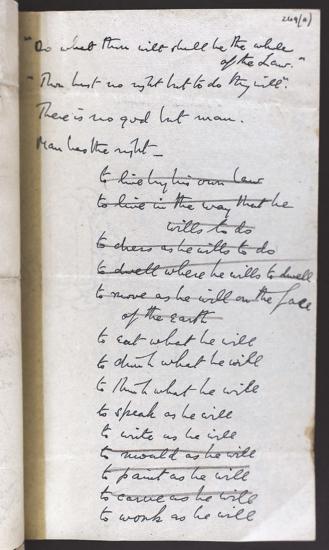 249(a)
"Do what thou wilt shall be the whole
of the Law."
"Thou hast no right but to do thy will".
There is no god but man.
Man has the right –
to live by his own law
to live in the way that he
wills to do
to dress as he wills to do
to dwell where he wills to dwell
to move as he will on the face
of the earth
to eat what he will
to drink what he will
to think what he will
to speak as he will
to write as he will
to mould as he will
to paint as he will
to carve as he will
to work as he will